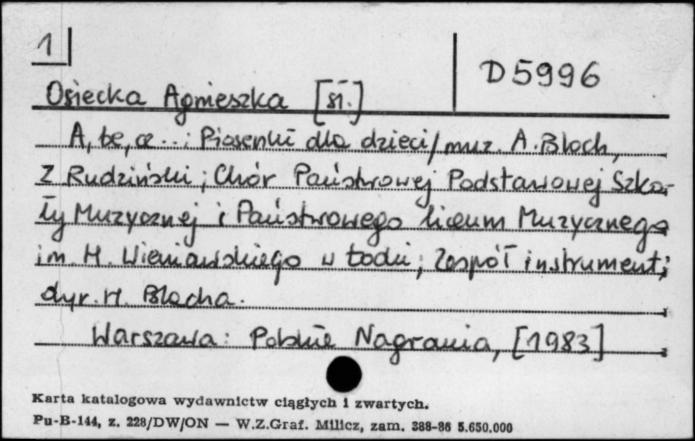 1
D 5996
Osiecka Agnieszka [sł.]
A, be, ce ... : Piosenki dla dzieci / muz. A. Bloch,
Z Rudziński ; Chór Państwowej Podstawowej Szko-
ły Muzycznej i Państwowego liceum Muzycznego
im. H. Wieniawskiego w Łodzi ; Zespół instrument ;
dyr. H. Blacha.
Warszawa : Polskie Nagrania, [1983]
Karta katalogowa wydawnictw ciągłych i zwartych.
Pu-B-144, z. 228/DW/ON — W.Z.Graf. Milicz, zam. 388-86 5.650.000